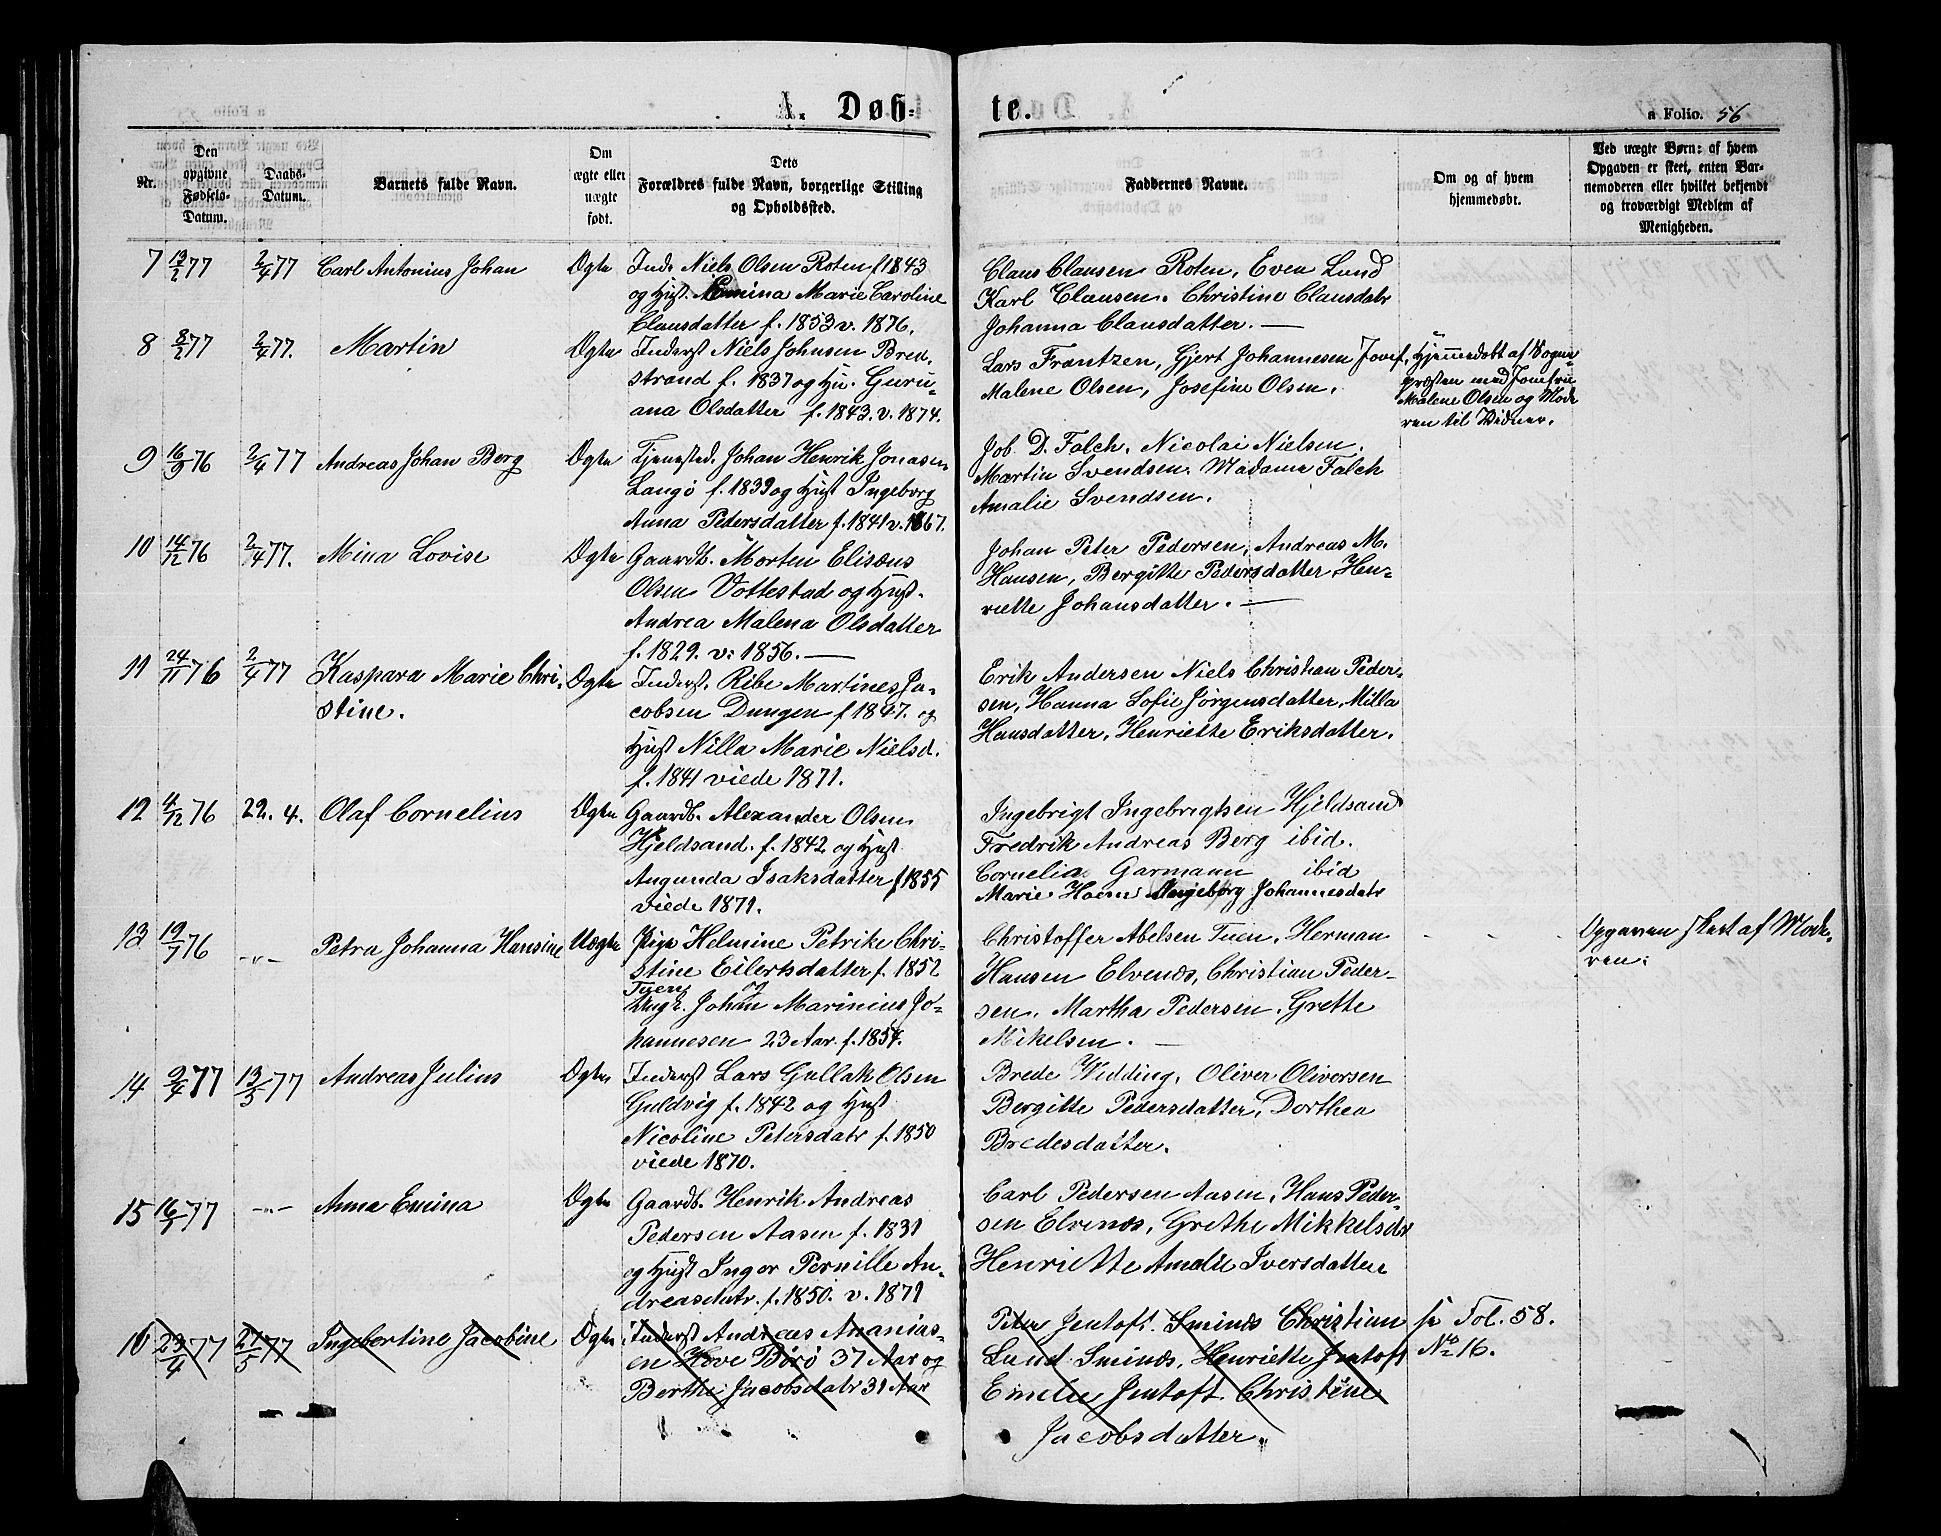 A. Døb=
te.
a Folio. 56
Nr.
Den opgivne Fødsels-Datum.
Daabs-Datum.
Barnets fulde Navn.
Om ægte eller uægte født.
Dets Forældres fulde Navn, borgerlige Stilling og Opholdssted.
Faddernes Navne.
Om og af hvem hjemmedøbt.
Ved uægte Børn: af hvem Opgaven er skeet, enten Barnemoderen eller hvilket bekjendt og troværdigt Medlem af Menigheden.
7 13/2 77 2/4 77 Carl Antonius Johan Ægte Inds. Niels Olsen Roten f 1843
og Hust. Emina Marie Caroline
Clausdatter f. 1853 v. 1876.
Claus Clausen Roten, Even Lund
Karl Clausen. Christine Clausdatr
Johanna Clausdatter. —
8 8/2 77 2/4 77. Martin Ægte Inderst Niels Johnsen Bred.
strand f. 1837 og Hu. Guru-
ana Olsdatter f. 1843. v. 1874.
Lars Frantzen, Gjert Johannesen Jomf.
Malene Olsen, Josefine Olsen.
Hjemmedøbt af Sogne
præsten med Jomfru
Malene Olsen og Mode
ren til Vidner.
9 16/9 76 2/4 77 Andreas Johan Berg Ægte Tjenested. Johan Henrik Jonasen
Langø f. 1839 og Hust Ingeborg
Anna Pedersdatter f. 1841 v. 1867.
Job D. Falch. Nicolai Nielsen.
Martin Svendsen. Madame Falch
Amalie Svendsen.
10 14/12 76 2/4 77. Mina Lovise Ægte Gaardb. Morten Elisæus
Olsen Vottestad og Hust.
Andrea Malena Olsdatter
f. 1829. v: 1856. —
Johan Peter Pedersen, Andreas M.
Hansen, Bergitte Pedersdatter, Hen-
riette Johansdatter. —
11 24/11 76 2/4 77 Kaspara Marie Chri-
stine.
Ægte Inderst. Ribe Martines Ja-
cobsen Dungen f 1847. og
Hust Nilla Marie Nielsd.
f. 1841 viede 1871.
Erik Andersen Niels Christian Peder-
sen, Hanna Sofie Jørgensdatter, Milla
Hansdatter, Henriette Eriksdatter.
12 4/12 76 22. 4. Olaf Cornelius Ægte Gaardb. Alexander Olsen
Hjeldsand. f. 1842 og Hust.
Angunda Isaksdatter f 1855
viede 1871.
Ingebrigt Ingebrigtsen Hjeldsand
Fredrik Andreas Berg ibid.
Cornelia Garmann ibid
Marie Ingeborg Johannesdatr
13 19/7 76 -"- Petra Johanna Hansine Uægte Pige Helmine Petrike Chri-
stine Eilertsdatter f. 1852
Tuen og
Ungk. Johan Marinius Jo-
hannesen 23 Aar f. 1854.
Christoffer Abelsen Tuen, Herman
Hansen Elvenæs, Christian Peder-
sen. Martha Pedersen, Grette
Mikelsen. —
Opgaven skeet af Mode-
ren.
14 9/4 77 13/5 77 Andreas Julius Ægte Inderst Lars Gullak Olsen
Guldvig f. 1842 og Hust
Nicoline Petersdatr f. 1850
viede 1870.
Brede Widding, Oliver Oliversen
Bergitte Pedersdatter, Dorthea
Bredesdatter.
15 16/1 77 -"- Anna Emina Ægte Gaardb. Henrik Andreas
Pedersen Aasen f. 1831
og Hust Inger Pernille An-
dreasdatr. f. 1850. v. 1871
Carl Pedersen Aasen, Hans Peder-
sen Elvenæs, Grethe Mikkelsdr
Henriette Amalie Iversdatter
16 23/4 77 27/5 77 Ingebertine Jacobine Ægte Inderst Andreas Ananias-
en Hove Børø 37 Aar og
Berthe Jacobsdatr 31 Aar
Peter Jentoft Sminæs Christian
Lund Sminæs, Henriette Jentoft
Emilie Jentoft Christine
Jacobsdatter.
se Fol. 58.
No 16.